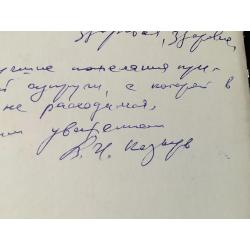 здоровья, здоровья,
учшие пожелания при-
й супруги, с которой в
не расходимся,
им уважением
В. И. Козырь